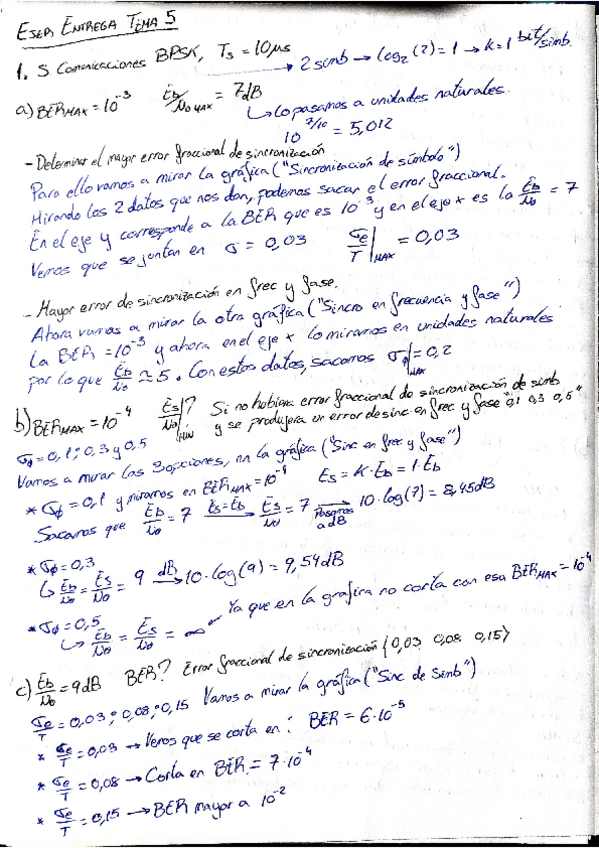 EJER ENTREGA TEMA 5
1. S Comunicaciones BPSK, Ts = 10μs → 2 simb → log₂(2) = 1 → k = 1 bit/simb.
a) BERMAX = 10⁻³ Eb/No MAX = 7dB
↳ Lo pasamos a unidades naturales.
10^7/10 = 5,012
- Determinar el mayor error fraccional de sincronización
Para ello vamos a mirar la gráfica ("Sincronización de símbolo")
Mirando los 2 datos que nos dan, podemos sacar el error fraccional.
En el eje y corresponde a la BER que es 10⁻³ y en el eje x es la Eb/No = 7
Vemos que se juntan en σ = 0,03 σe/T|MAX = 0,03
- Mayor error de sincronización en frec y fase.
Ahora vamos a mirar la otra gráfica ("Sincro en frecuencia y fase")
La BER = 10⁻³ y ahora en el eje x lo miramos en unidades naturales
por lo que Eb/No ≈ 5. Con estos datos, sacamos σφ|MAX = 0,2
b) BERMAX = 10⁻⁴ Es/No|MIN? Si no hubiera error fraccional de sincronización de simb
y se produjera un error de sinc en frec y fase "0,1 0,3 0,5"
σφ = 0,1; 0,3 y 0,5
Vamos a mirar las 3 opciones, en la gráfica ("Sinc en frec y fase")
* σφ = 0,1 y miramos en BERMAX = 10⁻⁴ Es = k·Eb = 1·Eb
Sacamos que Eb/No = 7 Es=Eb → Es/No = 7 pasamos a dB → 10·log(7) = 8,45dB
* σφ = 0,3
↳ Eb/No = Es/No = 9 dB → 10·log(9) = 9,54dB
* σφ = 0,5 Ya que en la grafica no corta con esa BERMAX = 10⁻⁴
↳ Eb/No = Es/No = ∞
c) Eb/No = 9dB BER? Error fraccional de sincronización {0,03 0,08 0,15}
σe/T = 0,03; 0,08; 0,15 Vamos a mirar la gráfica ("Sinc de Simb")
* σe/T = 0,03 → Vemos que se corta en: BER = 6·10⁻⁵
* σe/T = 0,08 → Corta en BER = 7·10⁻⁴
* σe/T = 0,15 → BER mayor a 10⁻²